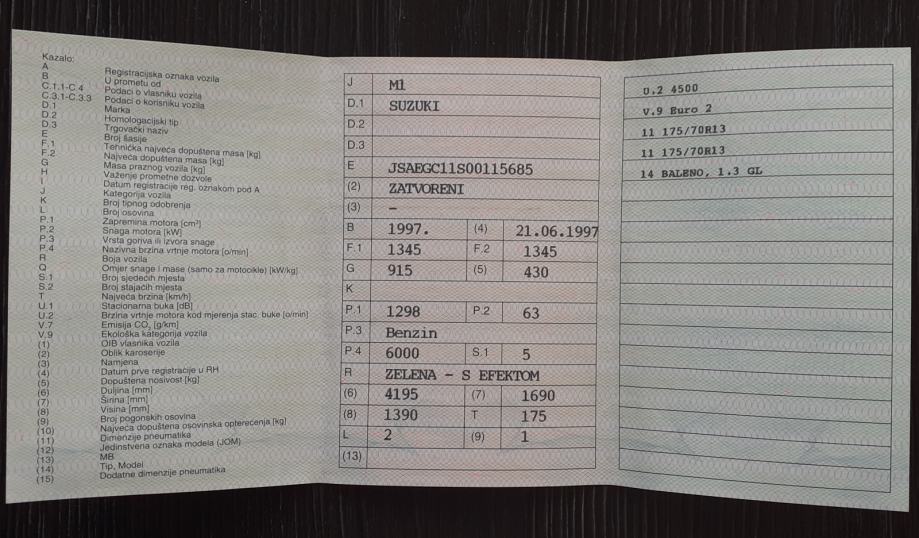 Kazalo:
A Registracijska oznaka vozila
B U prometu od
C.1.1-C.4 Podaci o vlasniku vozila
C.3.1-C.3.3 Podaci o korisniku vozila
D.1 Marka
D.2 Homologacijski tip
D.3 Trgovački naziv
E Broj šasije
F.1 Tehnička najveća dopuštena masa [kg]
F.2 Najveća dopuštena masa [kg]
G Masa praznog vozila [kg]
H Važenje prometne dozvole
I Datum registracije reg. oznakom pod A
J Kategorija vozila
K Broj tipnog odobrenja
L Broj osovina
P.1 Zapremina motora [cm³]
P.2 Snaga motora [kW]
P.3 Vrsta goriva ili izvora snage
P.4 Nazivna brzina vrtnje motora [o/min]
R Boja vozila
Q Omjer snage i mase (samo za motocikle) [kW/kg]
S.1 Broj sjedećih mjesta
S.2 Broj stajaćih mjesta
T Najveća brzina [km/h]
U.1 Stacionarna buka [dB]
U.2 Brzina vrtnje motora kod mjerenja stac. buke [o/min]
V.7 Emisija CO₂ [g/km]
V.9 Ekološka kategorija vozila
(1) OIB vlasnika vozila
(2) Oblik karoserije
(3) Namjena
(4) Datum prve registracije u RH
(5) Dopuštena nosivost [kg]
(6) Duljina [mm]
(7) Širina [mm]
(8) Visina [mm]
(9) Broj pogonskih osovina
(10) Najveća dopuštena osovinska opterećenja [kg]
(11) Dimenzije pneumatika
(12) Jedinstvena oznaka modela (JOM)
(13) MB
(14) Tip, Model
(15) Dodatne dimenzije pneumatika
J M1
D.1 SUZUKI
D.2
D.3
E JSAEGC11S00115685
(2) ZATVORENI
(3) –
B 1997. (4) 21.06.1997
F.1 1345 F.2 1345
G 915 (5) 430
K
P.1 1298 P.2 63
P.3 Benzin
P.4 6000 S.1 5
R ZELENA - S EFEKTOM
(6) 4195 (7) 1690
(8) 1390 T 175
L 2 (9) 1
(13)
U.2 4500
V.9 Euro 2
11 175/70R13
11 175/70R13
14 BALENO, 1.3 GL